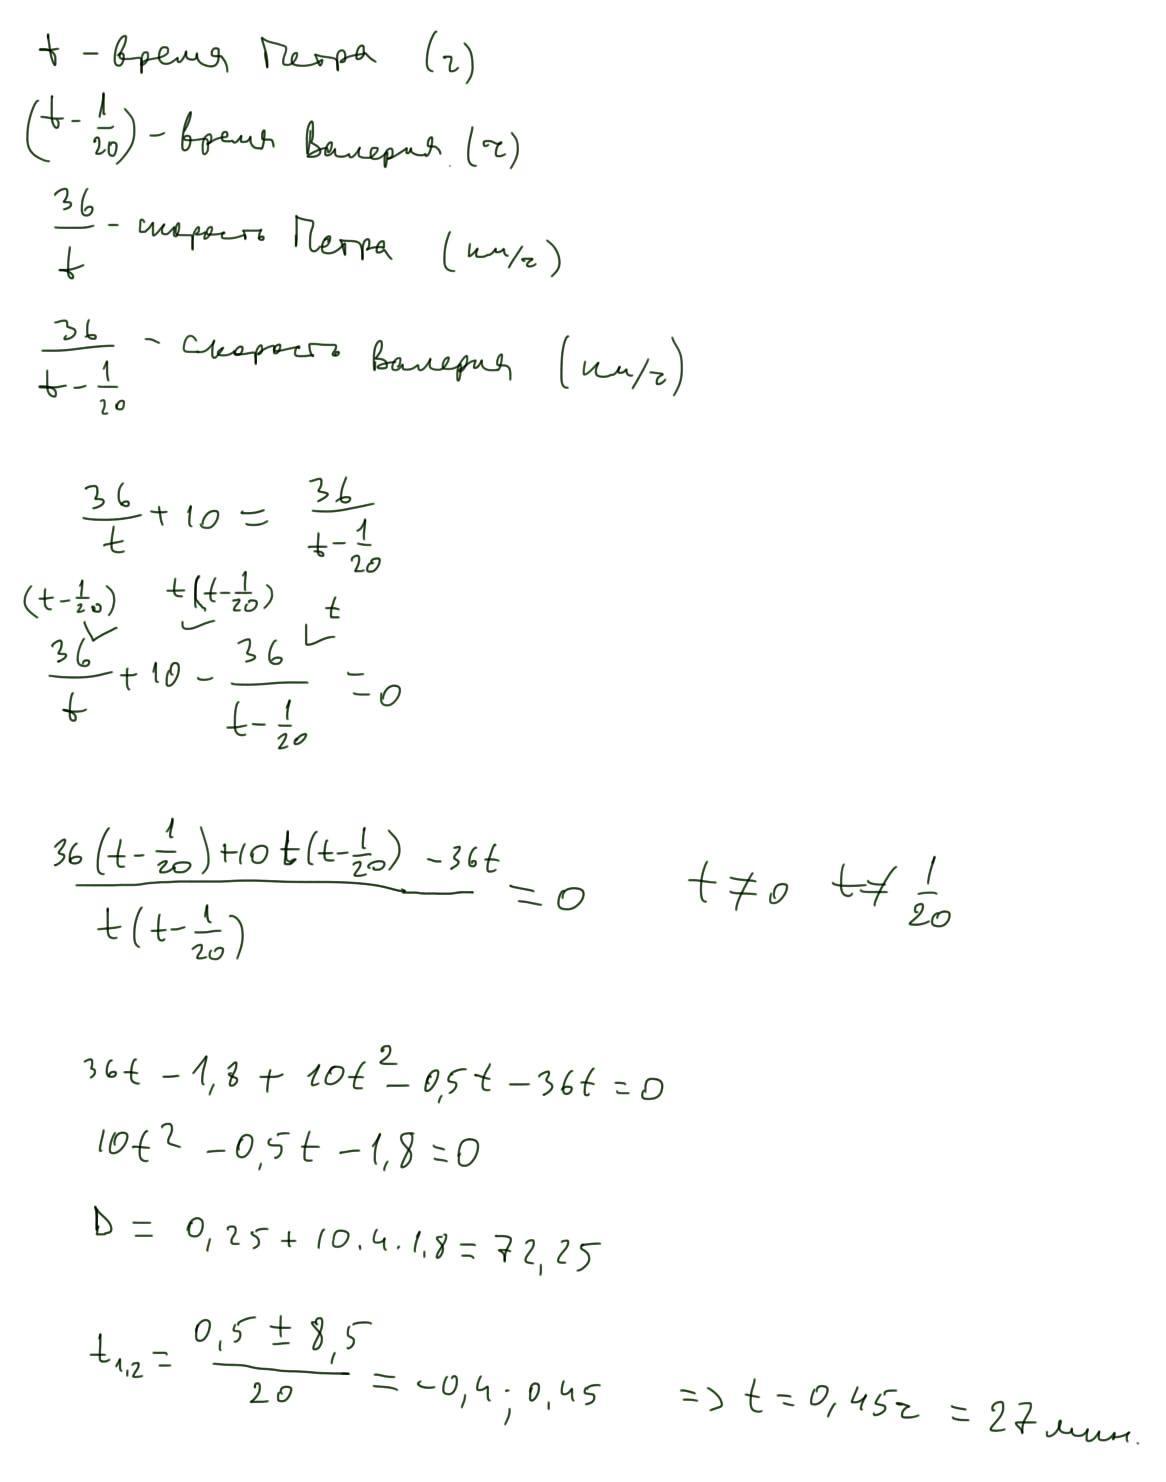 t - время Петра (ч)
(t - 1/20) - время Валерия (ч)
36/t - скорость Петра (км/ч)
36/(t - 1/20) - скорость Валерия (км/ч)
36/t + 10 = 36/(t - 1/20)
(t - 1/20) t(t - 1/20) t
36/t + 10 - 36/(t - 1/20) = 0
(36(t - 1/20) + 10t(t - 1/20) - 36t)/(t(t - 1/20)) = 0 t ≠ 0 t ≠ 1/20
36t - 1,8 + 10t² - 0,5t - 36t = 0
10t² - 0,5t - 1,8 = 0
D = 0,25 + 10.4.1,8 = 72,25
t₁,₂ = (0,5 ± 8,5)/20 = -0,4; 0,45 => t = 0,45ч = 27 мин.